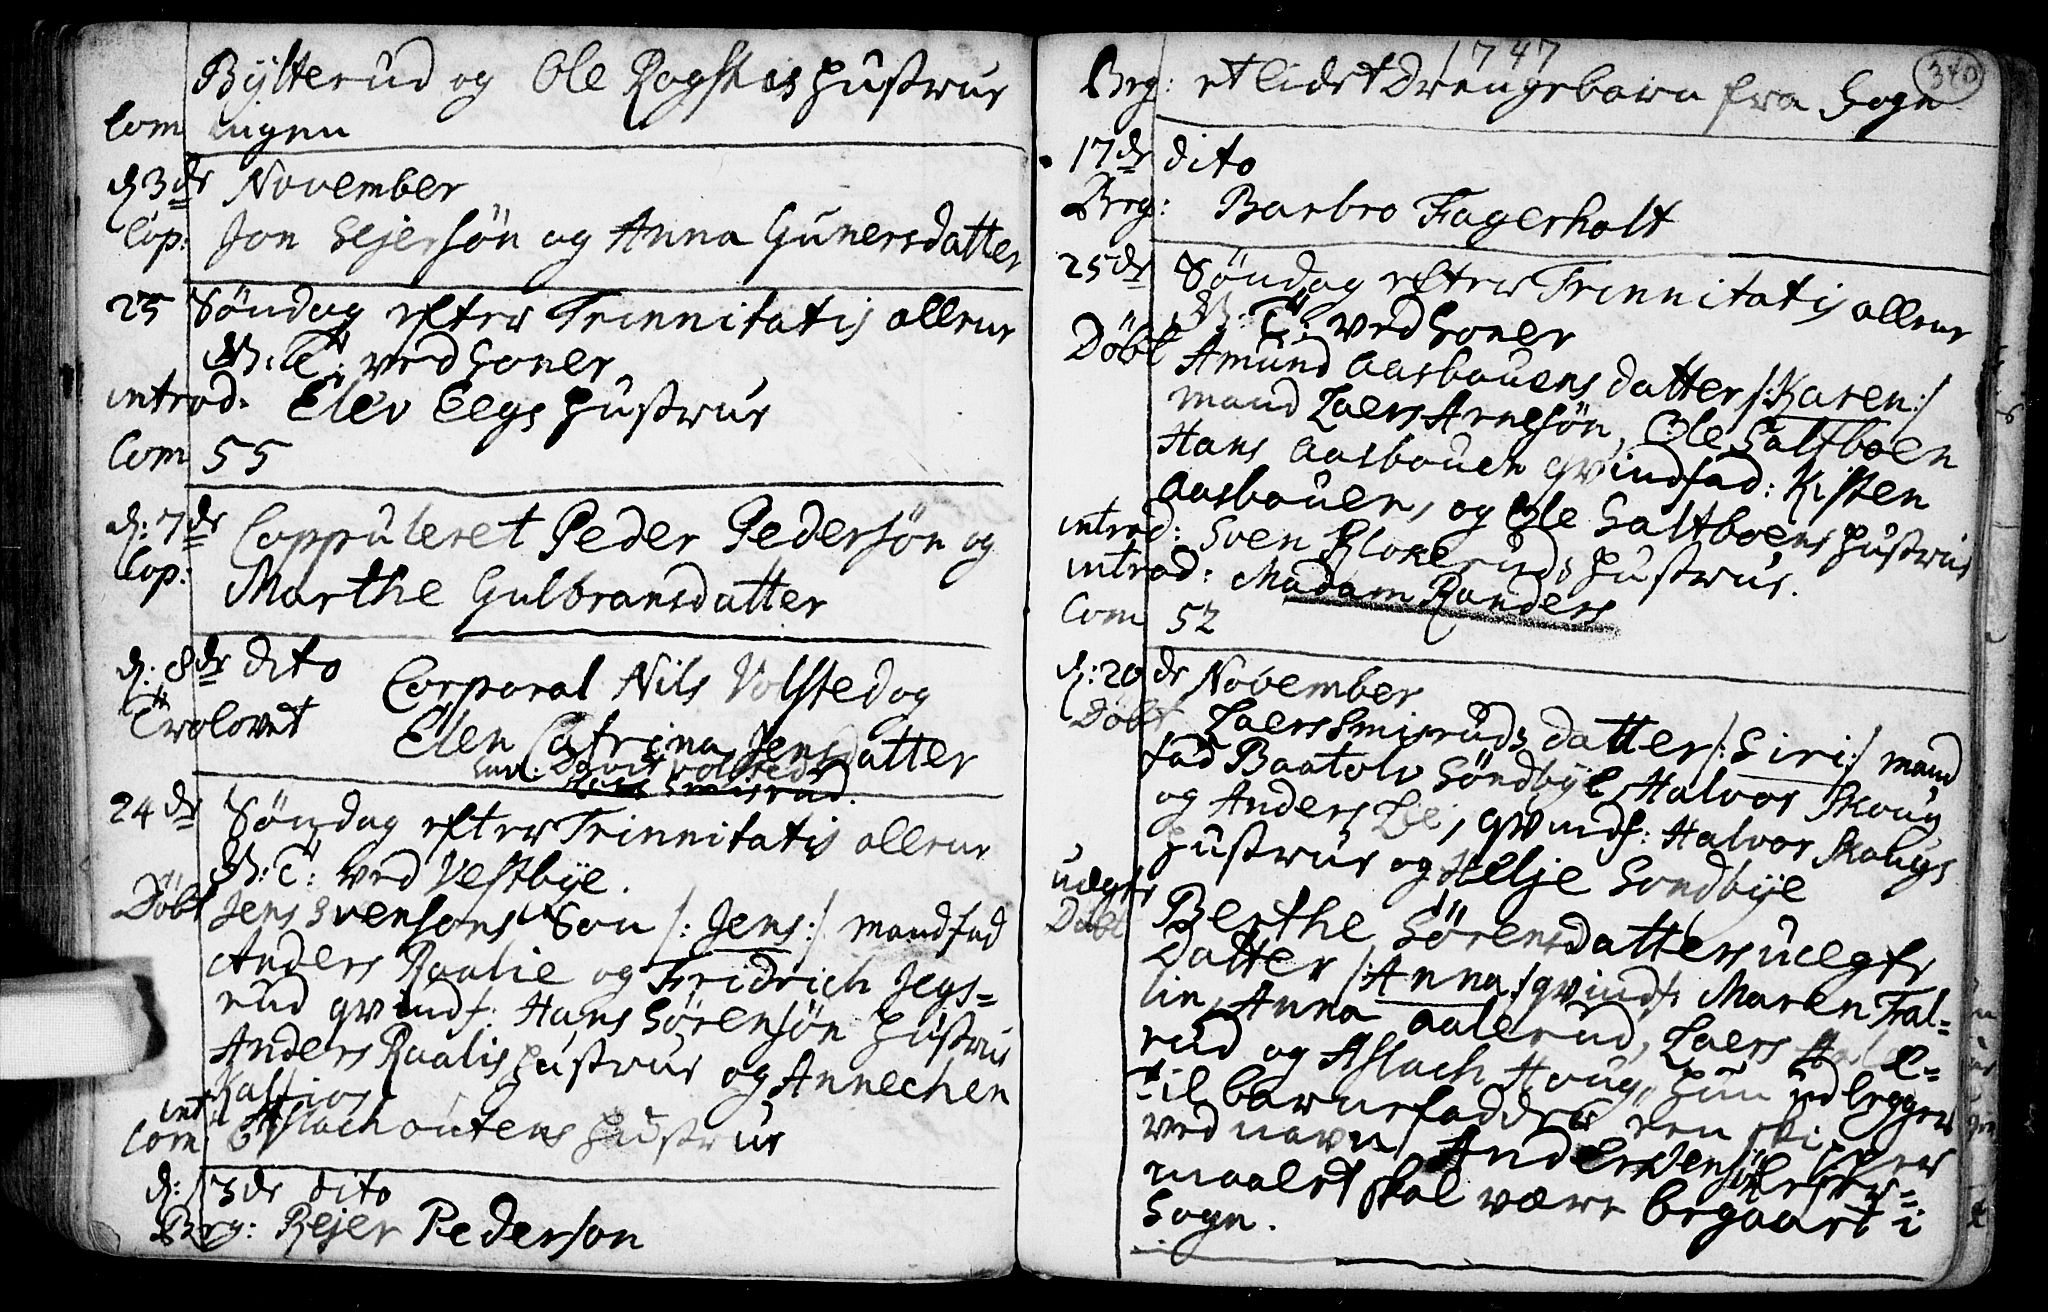 Bÿlterud og Ole Rogstas Hustrue
Com ingen
d 3de November
Cop: Jon Sejersøn og Anna Gunersdatter
25 Søndag efter Trinnitatis allene
B: T: ved Soner
introd. Elev Eegs Hustrue
Com 55
d: 7de Coppuleret Peder Pedersøn og
Cop: Marthe Gulbransdatter
d: 8de dito Corporal Nils Volsted og
Trolovet Elen Catrina Jensdatter
David Volsted
24de Søndag efter Trinnitatis allene
B: T: ved Vestbÿe.
Døbt Jens Svensons Søn /: Jens :/ mandfad
Anders Raalie og Fridrich Jegs=
rud qvindf: Hans Sørensøn Hustrue
Anders Raalis Hustrue og Annechen
int Aslach outens Hustrue
Com
d: 13de dito
Brg: Rejer Pederson
1747
340
Brg: et lidet Drengebarn fra Sogn
17de dito
Brg: Barbro Fagerholt
25de Søndag efter Trinnitatis allene
B: T: ved Soner
Døbt Amund Aasbouens datter /: Karen :/
mand Laers Arnesøn, Ole Saltboen
Hans Aasbouen qvindfad: Kisten
Aasbouen, og Ole Saltboens Hustrue
introd: Sven Klokeruds Hustrue.
introd: Madam Randers
Com 52
d: 20de November
Døbt Laers Smisruds datter /: Siri :/ mand
fad Baatolv Søndbÿe, Halvor Skoug
og Anders Lie, qvindf: Halvor Skougs
Hustrue og Helje Sondbÿe
uægte Berthe Sørensdatters uegte
Døbt Datter /: Anna :/ qvindf: Maren Fal=
lin, Anna Aalerud, Laers
rud og Aslach Houg, Hun udlegger
til barnefadder en
ved navn Anders
maalet skal være begaaet i
Sogn.